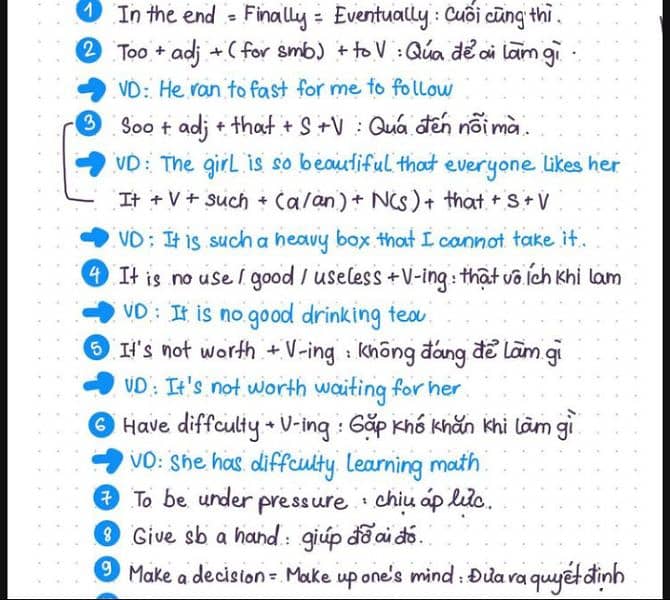 1 In the end = Finally = Eventually : Cuối cùng thì.
2 Too + adj + (for smb) + to V : Qúa để ai làm gì.
→ VD: He ran to fast for me to follow
3 Soo + adj + that + S + V : Quá đến nỗi mà.
→ VD: The girl is so beautiful that everyone likes her
It + V + such + (a/an) + N(s) + that + S + V
→ VD: It is such a heavy box that I cannot take it.
4 It is no use / good / useless + V-ing : thật vô ích khi lam
→ VD: It is no good drinking tea
5 It's not worth + V-ing : không đáng để làm gì
→ VD: It's not worth waiting for her
6 Have diffculty + V-ing : Gặp khó khăn khi làm gì
→ VD: She has diffculty learning math
7 To be under pressure : chịu áp lực.
8 Give sb a hand : giúp đỡ ai đó.
9 Make a decision = Make up one's mind : Đưa ra quyết định